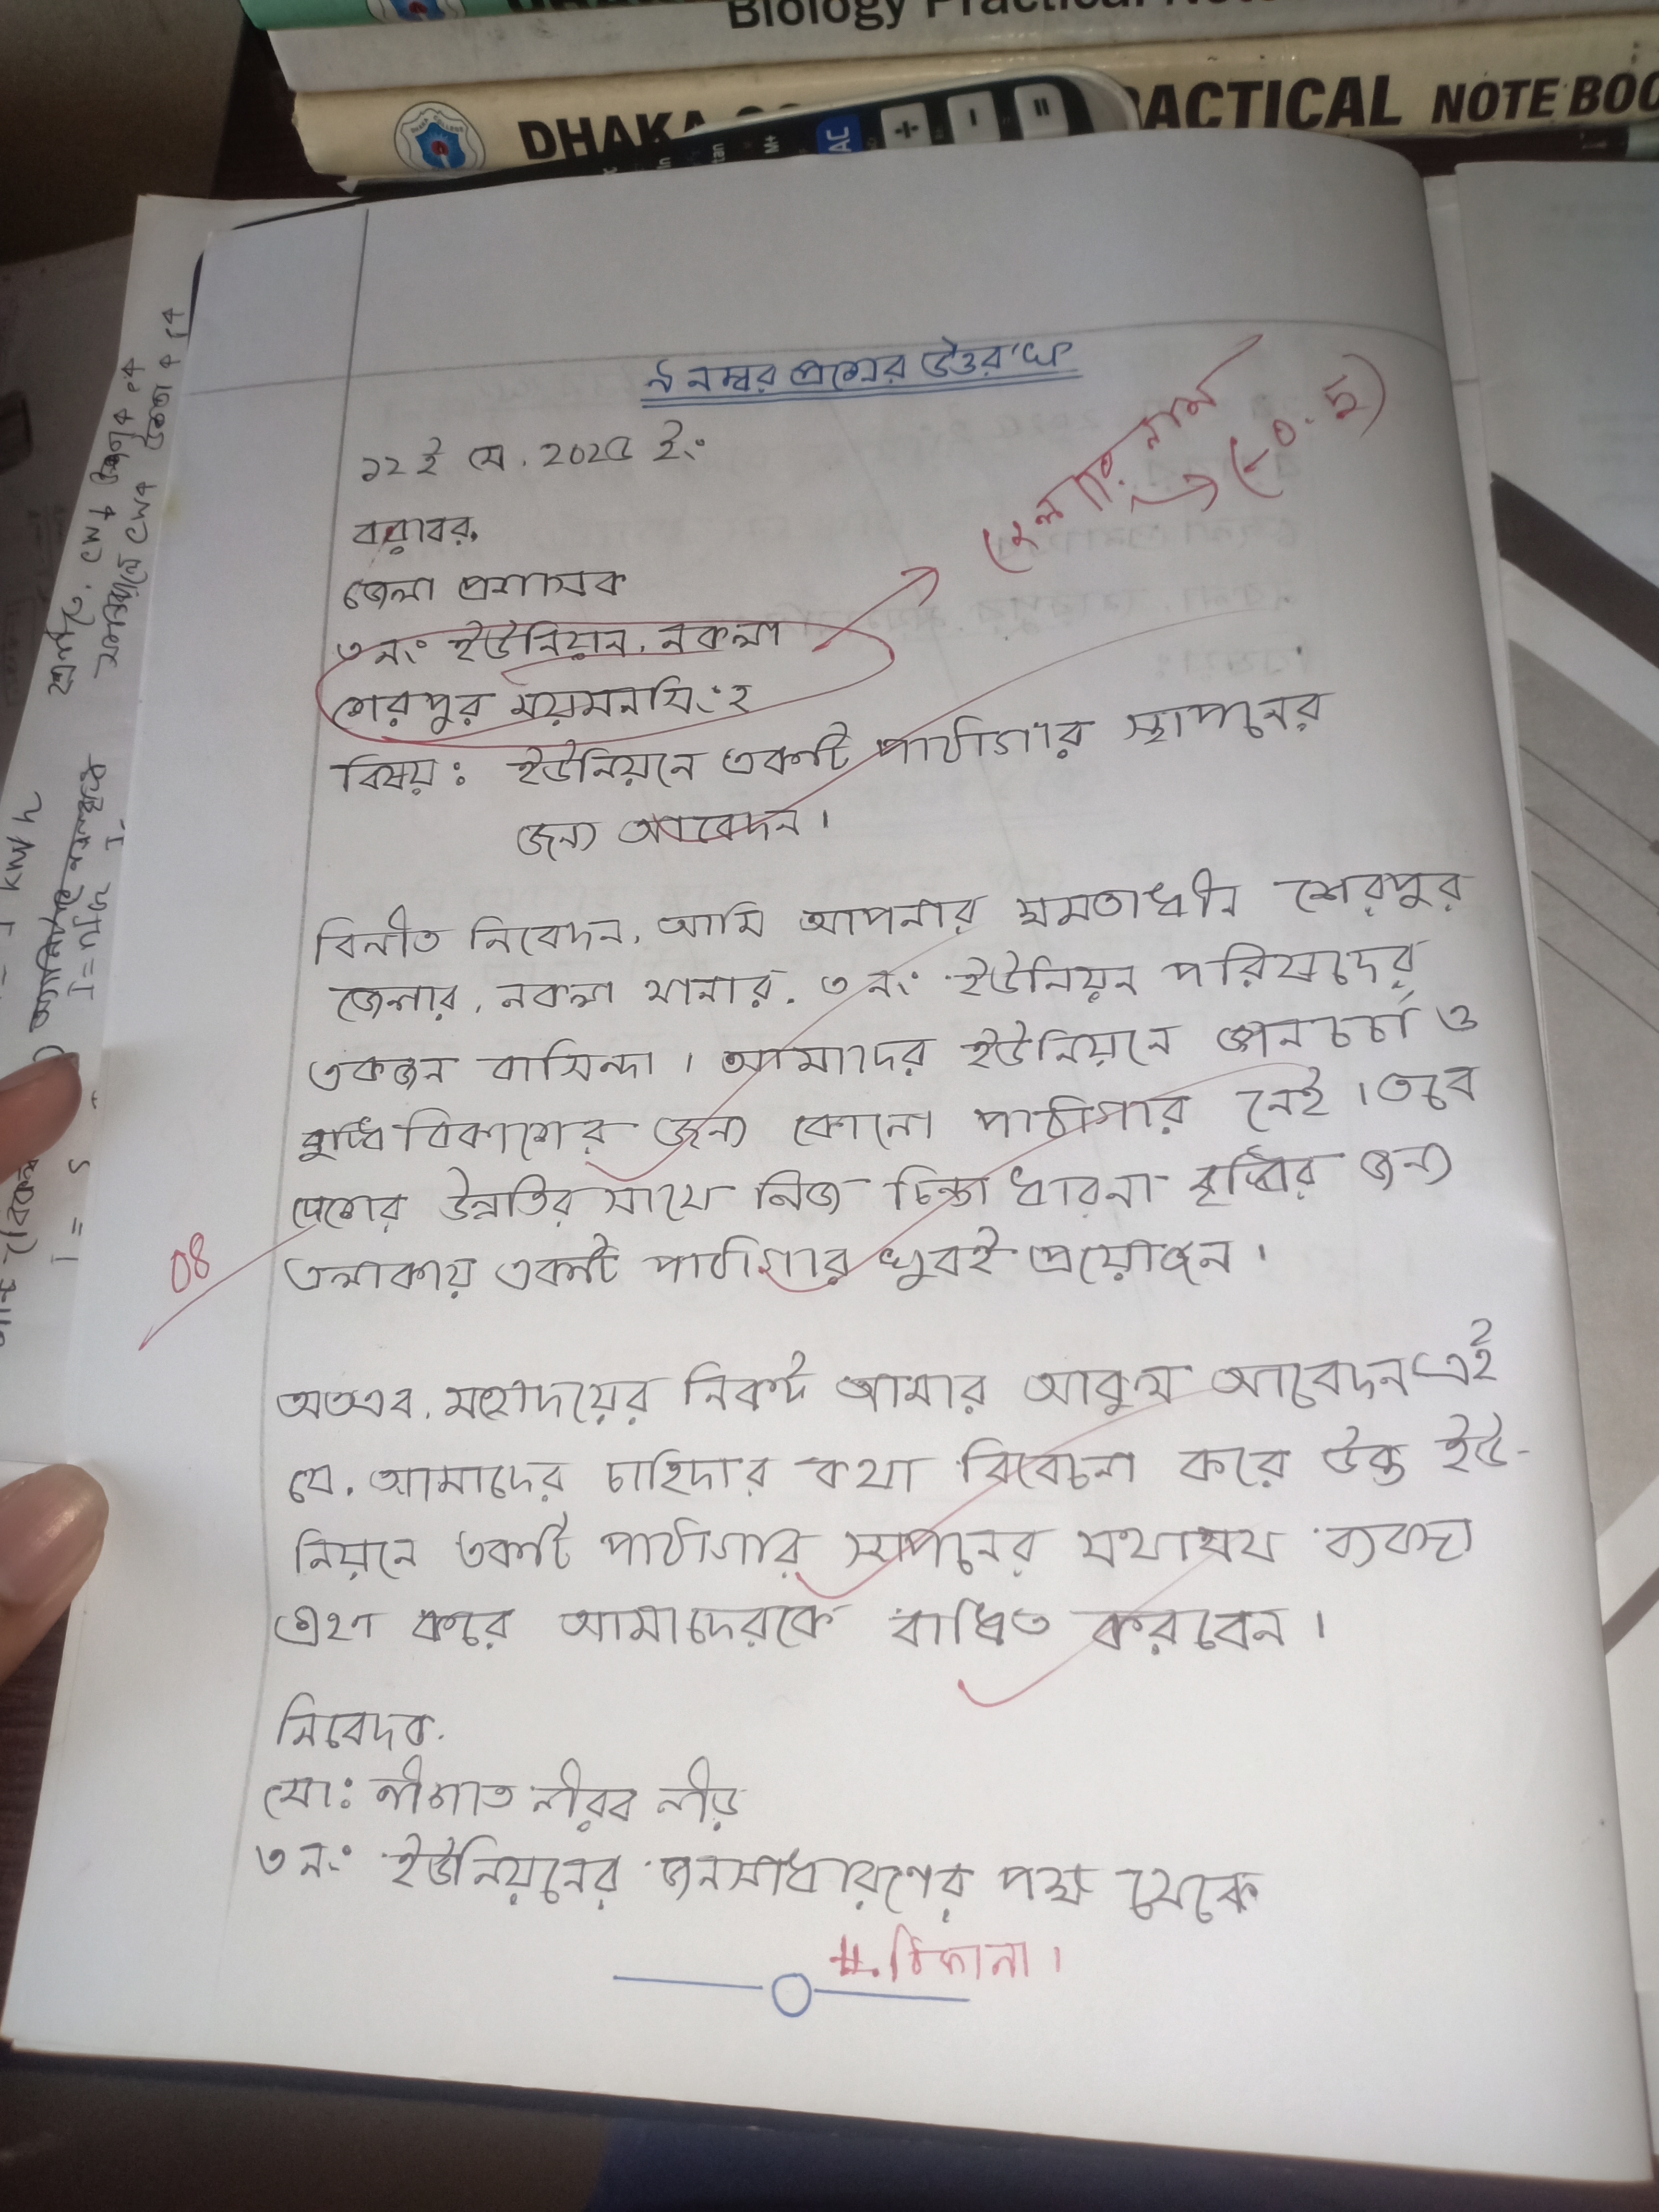 Biology Practical Note
DHAKA CO
RACTICAL NOTE BOO
DHAKA COLLEGE
M+
AC
÷
−
=
৯ নম্বর প্রশ্নের উত্তর 'খ'
১২ই মে, 202৫ ইং
বরাবর,
জেলা প্রশাসক
৩নং ইউনিয়ন, নকলা
শেরপুর ময়মনসিংহ
জেলার নাম
→ (-0.5)
বিষয়ঃ ইউনিয়নে একটি পাঠাগার স্থাপনের
জন্য আবেদন।
বিনীত নিবেদন, আমি আপনার ক্ষমতাধীন শেরপুর
জেলার, নকলা থানার, ৩ নং ইউনিয়ন পরিষদের
একজন বাসিন্দা। আমাদের ইউনিয়নে জ্ঞানচর্চা ও
বুদ্ধি বিকাশের জন্য কোনো পাঠাগার নেই। তবে
দেশের উন্নতির সাথে নিজ চিন্তা ধারনা বৃদ্ধির জন্য
এলাকায় একটি পাঠাগার খুবই প্রয়োজন।
08
অতএব, মহোদয়ের নিকট আমার আকুল আবেদন এই
যে, আমাদের চাহিদার কথা বিবেচনা করে উক্ত ইউ-
নিয়নে একটি পাঠাগার স্থাপনের যথাযথ ব্যবস্থা
গ্রহণ করে আমাদেরকে বাধিত করবেন।
নিবেদক,
মো: নীরব নীড়
৩ নং ইউনিয়নের জনসাধারণের পক্ষ থেকে
#. ঠিকানা।